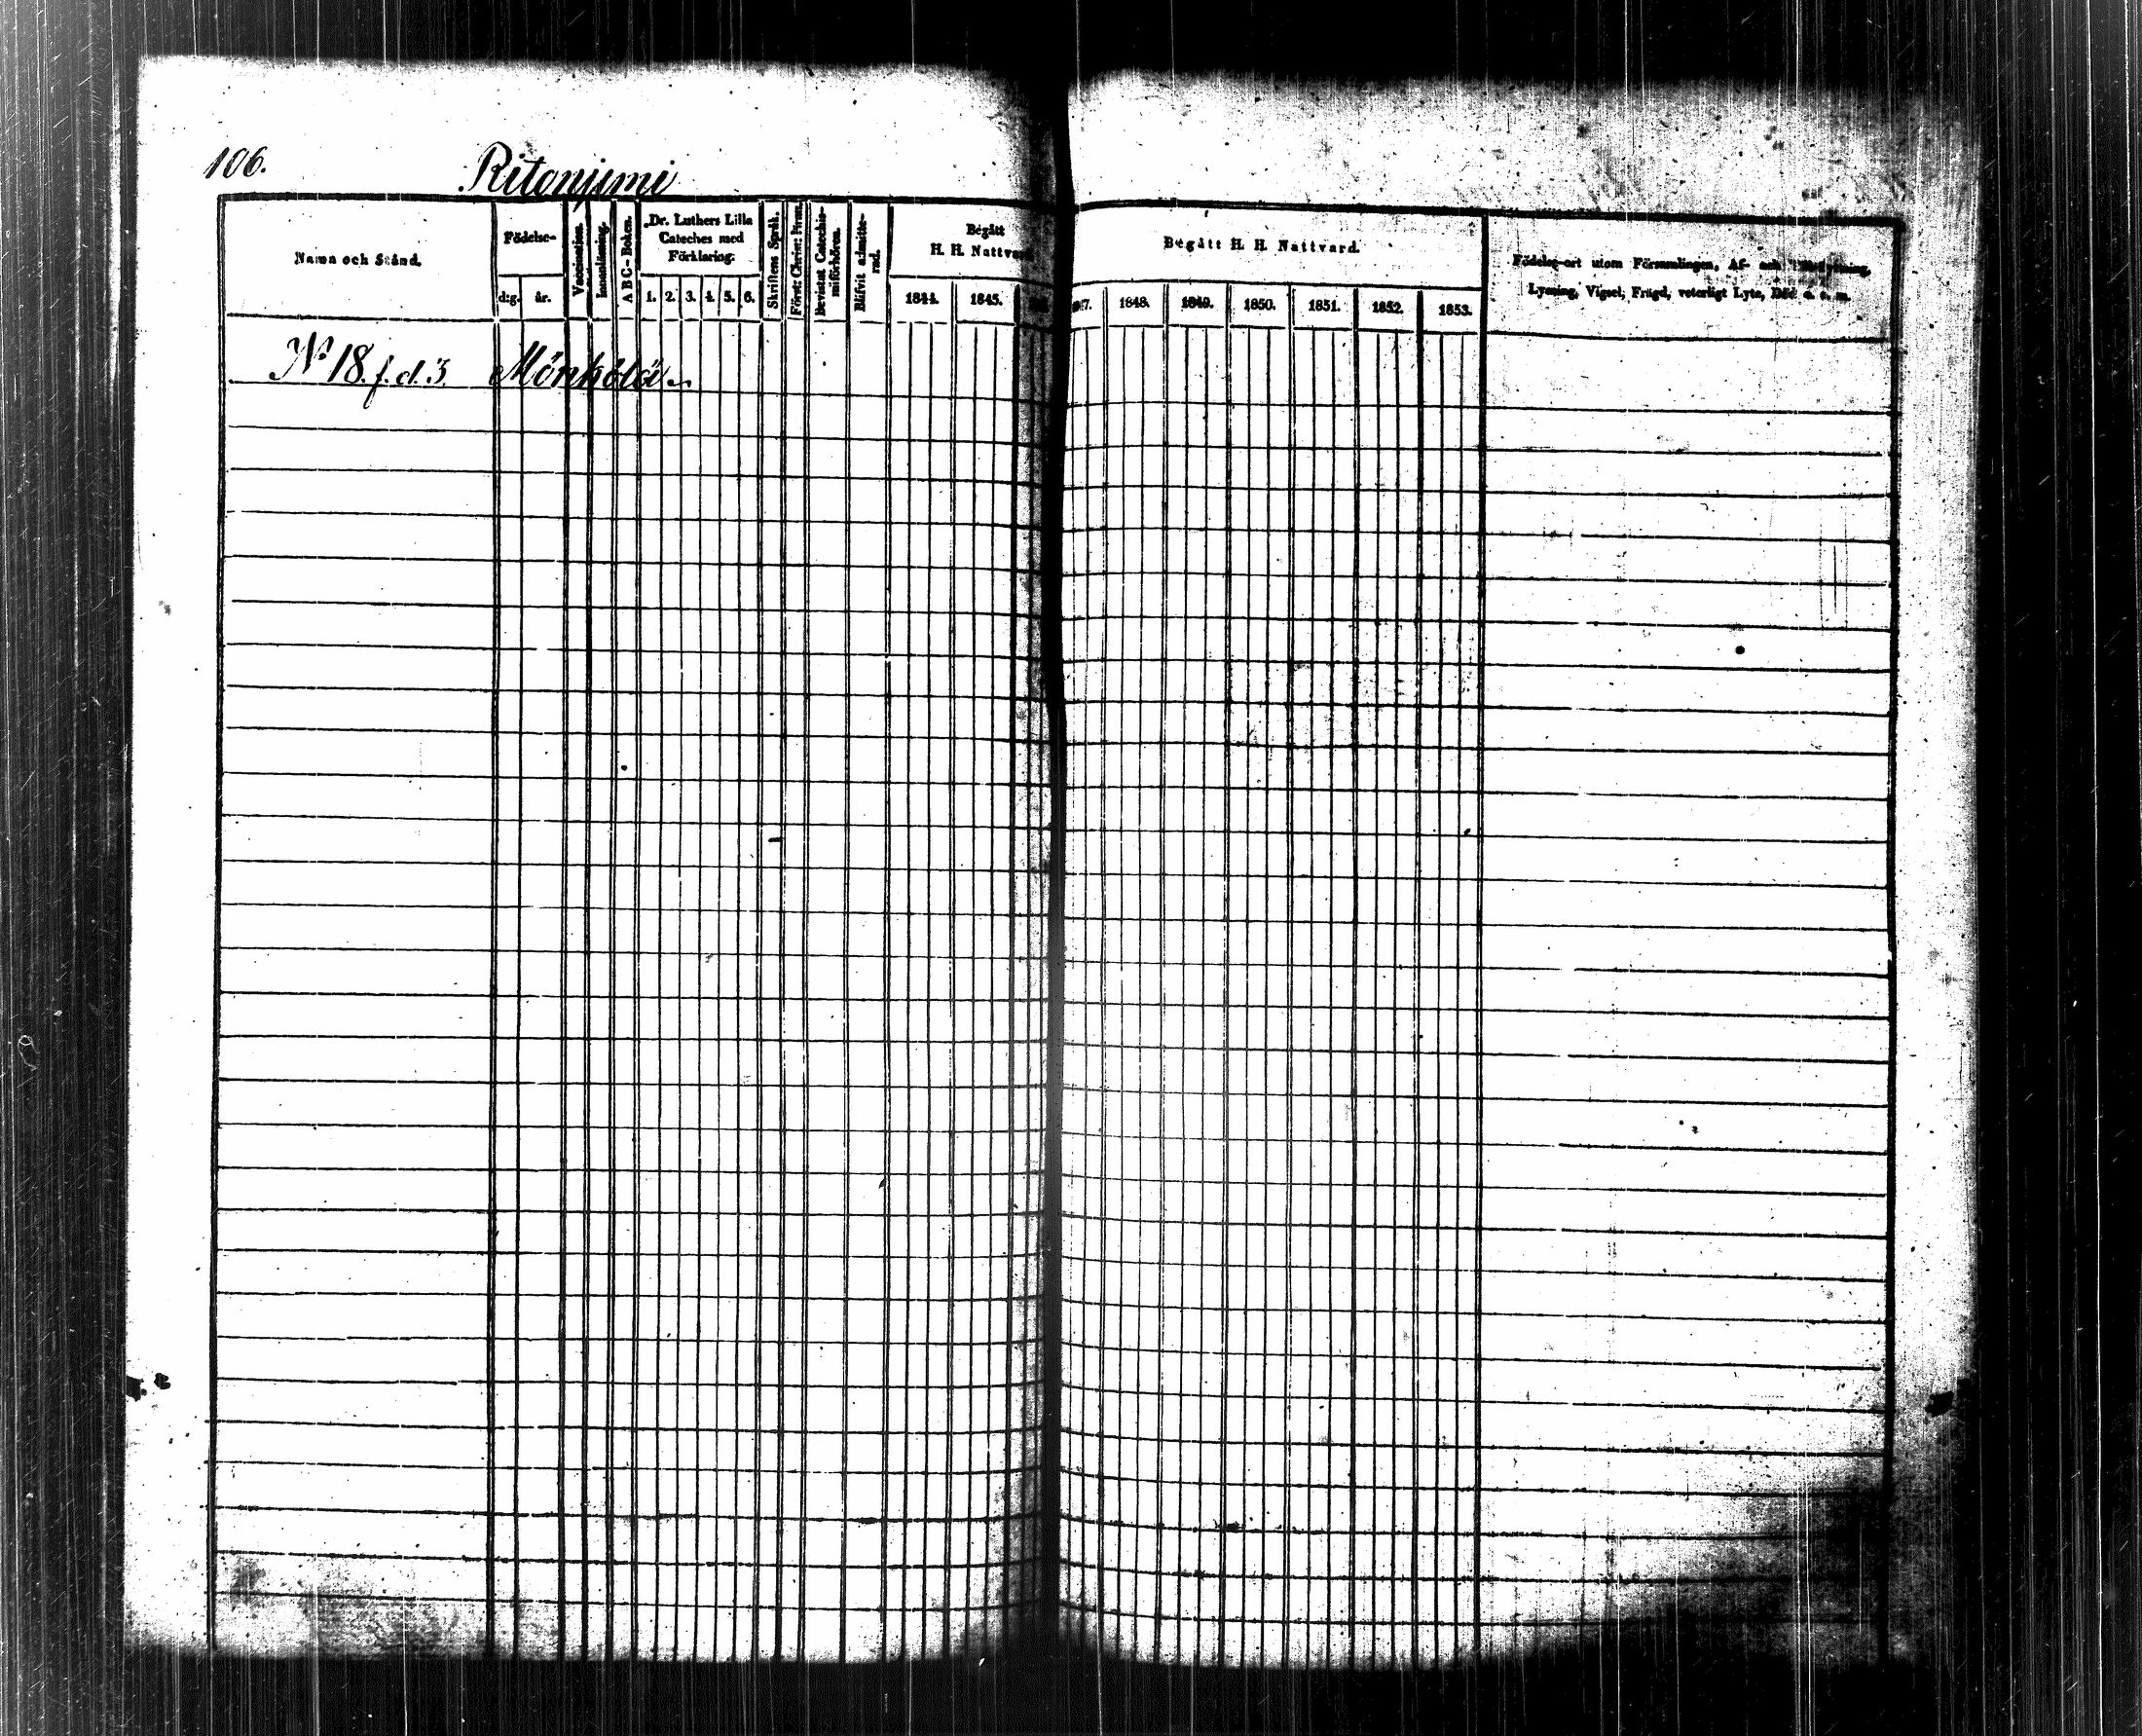 106.
Ritoniemi
Namn och Stånd.
Födelse-
d:g.
år.
Vaccination.
Innanläsning.
A B C - Boken.
Dr. Luthers Lilla
Cateches med
Förklaring.
1. 2. 3. 4. 5. 6.
Skriftens Språk.
Först: Christ: Num.
Bevistat Catechis-
miförhören.
Blifvit admitte-
rad.
Begått
H. H. Nattvard
1844. 1845.
Begått H. H. Nattvard.
1848. 1849. 1850. 1851. 1852. 1853.
Födelse-ort utom Församlingen, Af- och
Lysning, Vigsel, Frägd, veterligt Lyte, Död o. s. m.
N° 18. f. d. 3 Mönkölä